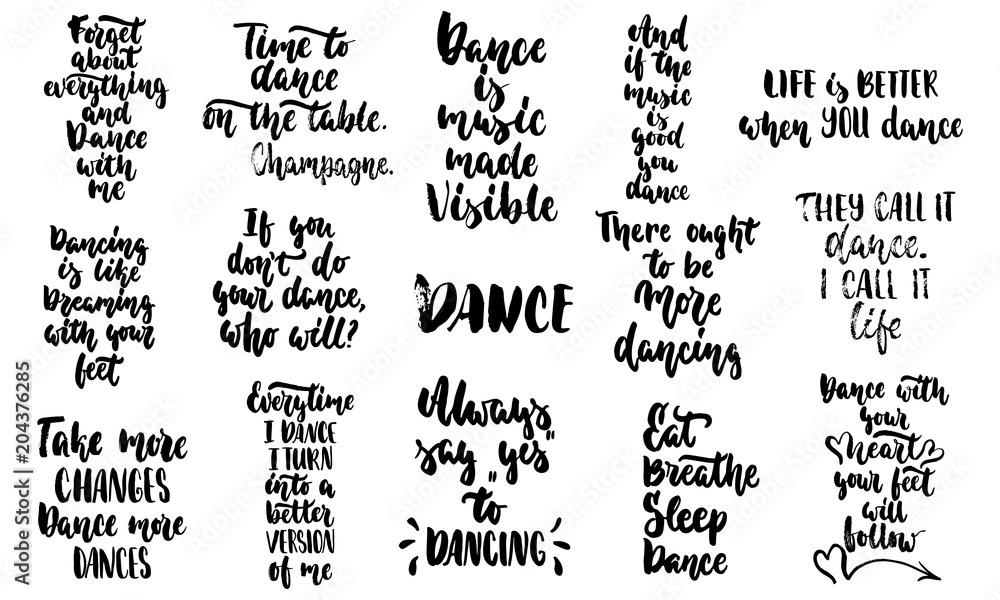 Forget
about
everything
and
Dance
with
me
Time to
dance
on the table.
Champagne.
Dance
is
music
made
Visible
And
if the
music
is
good
you
dance
LIFE is BETTER
when YOU dance
Dancing
is like
Dreaming
with your
feet
If you
don't do
your dance,
who will?
DANCE
There ought
to be
More
dancing
THEY CALL IT
dance.
I CALL IT
life
Take more
CHANGES
Dance more
DANCES
Everytime
I DANCE
I TURN
into a
better
VERSION
of me
Always
say „yes"
to
DANCING
Eat
Breathe
Sleep
Dance
Dance with
your
heart
your feet
will
follow
Adobe Stock | #204376285